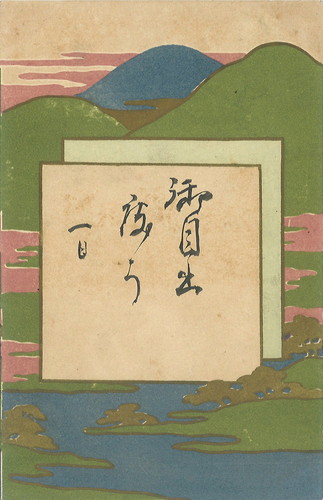 御目出
度う
一日